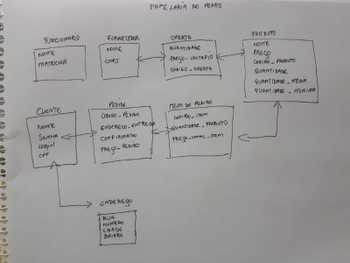 FUNCIONARIO
NOME
MATRICULA
FORNECEDOR
NOME
CNPJ
OFERTA
QUANTIDADE
PREÇO_UNITARIO
CODIGO_OFERTA
PRODUTO
NOME
PREÇO
CODIGO_PRODUTO
QUANTIDADE
QUANTIDADE_MEDIA
QUANTIDADE_MINIMA
CLIENTE
NOME
SENHA
LOGIN
CPF
PEDIDO
CODIGO_PEDIDO
ENDEREÇO_ENTREGA
CONFIRMADO
PREÇO_PEDIDO
ITEM DE PEDIDO
CODIGO_ITEM
QUANTIDADE_PRODUTO
ENDEREÇO
RUA
NUMERO
CIDADE
BAIRRO